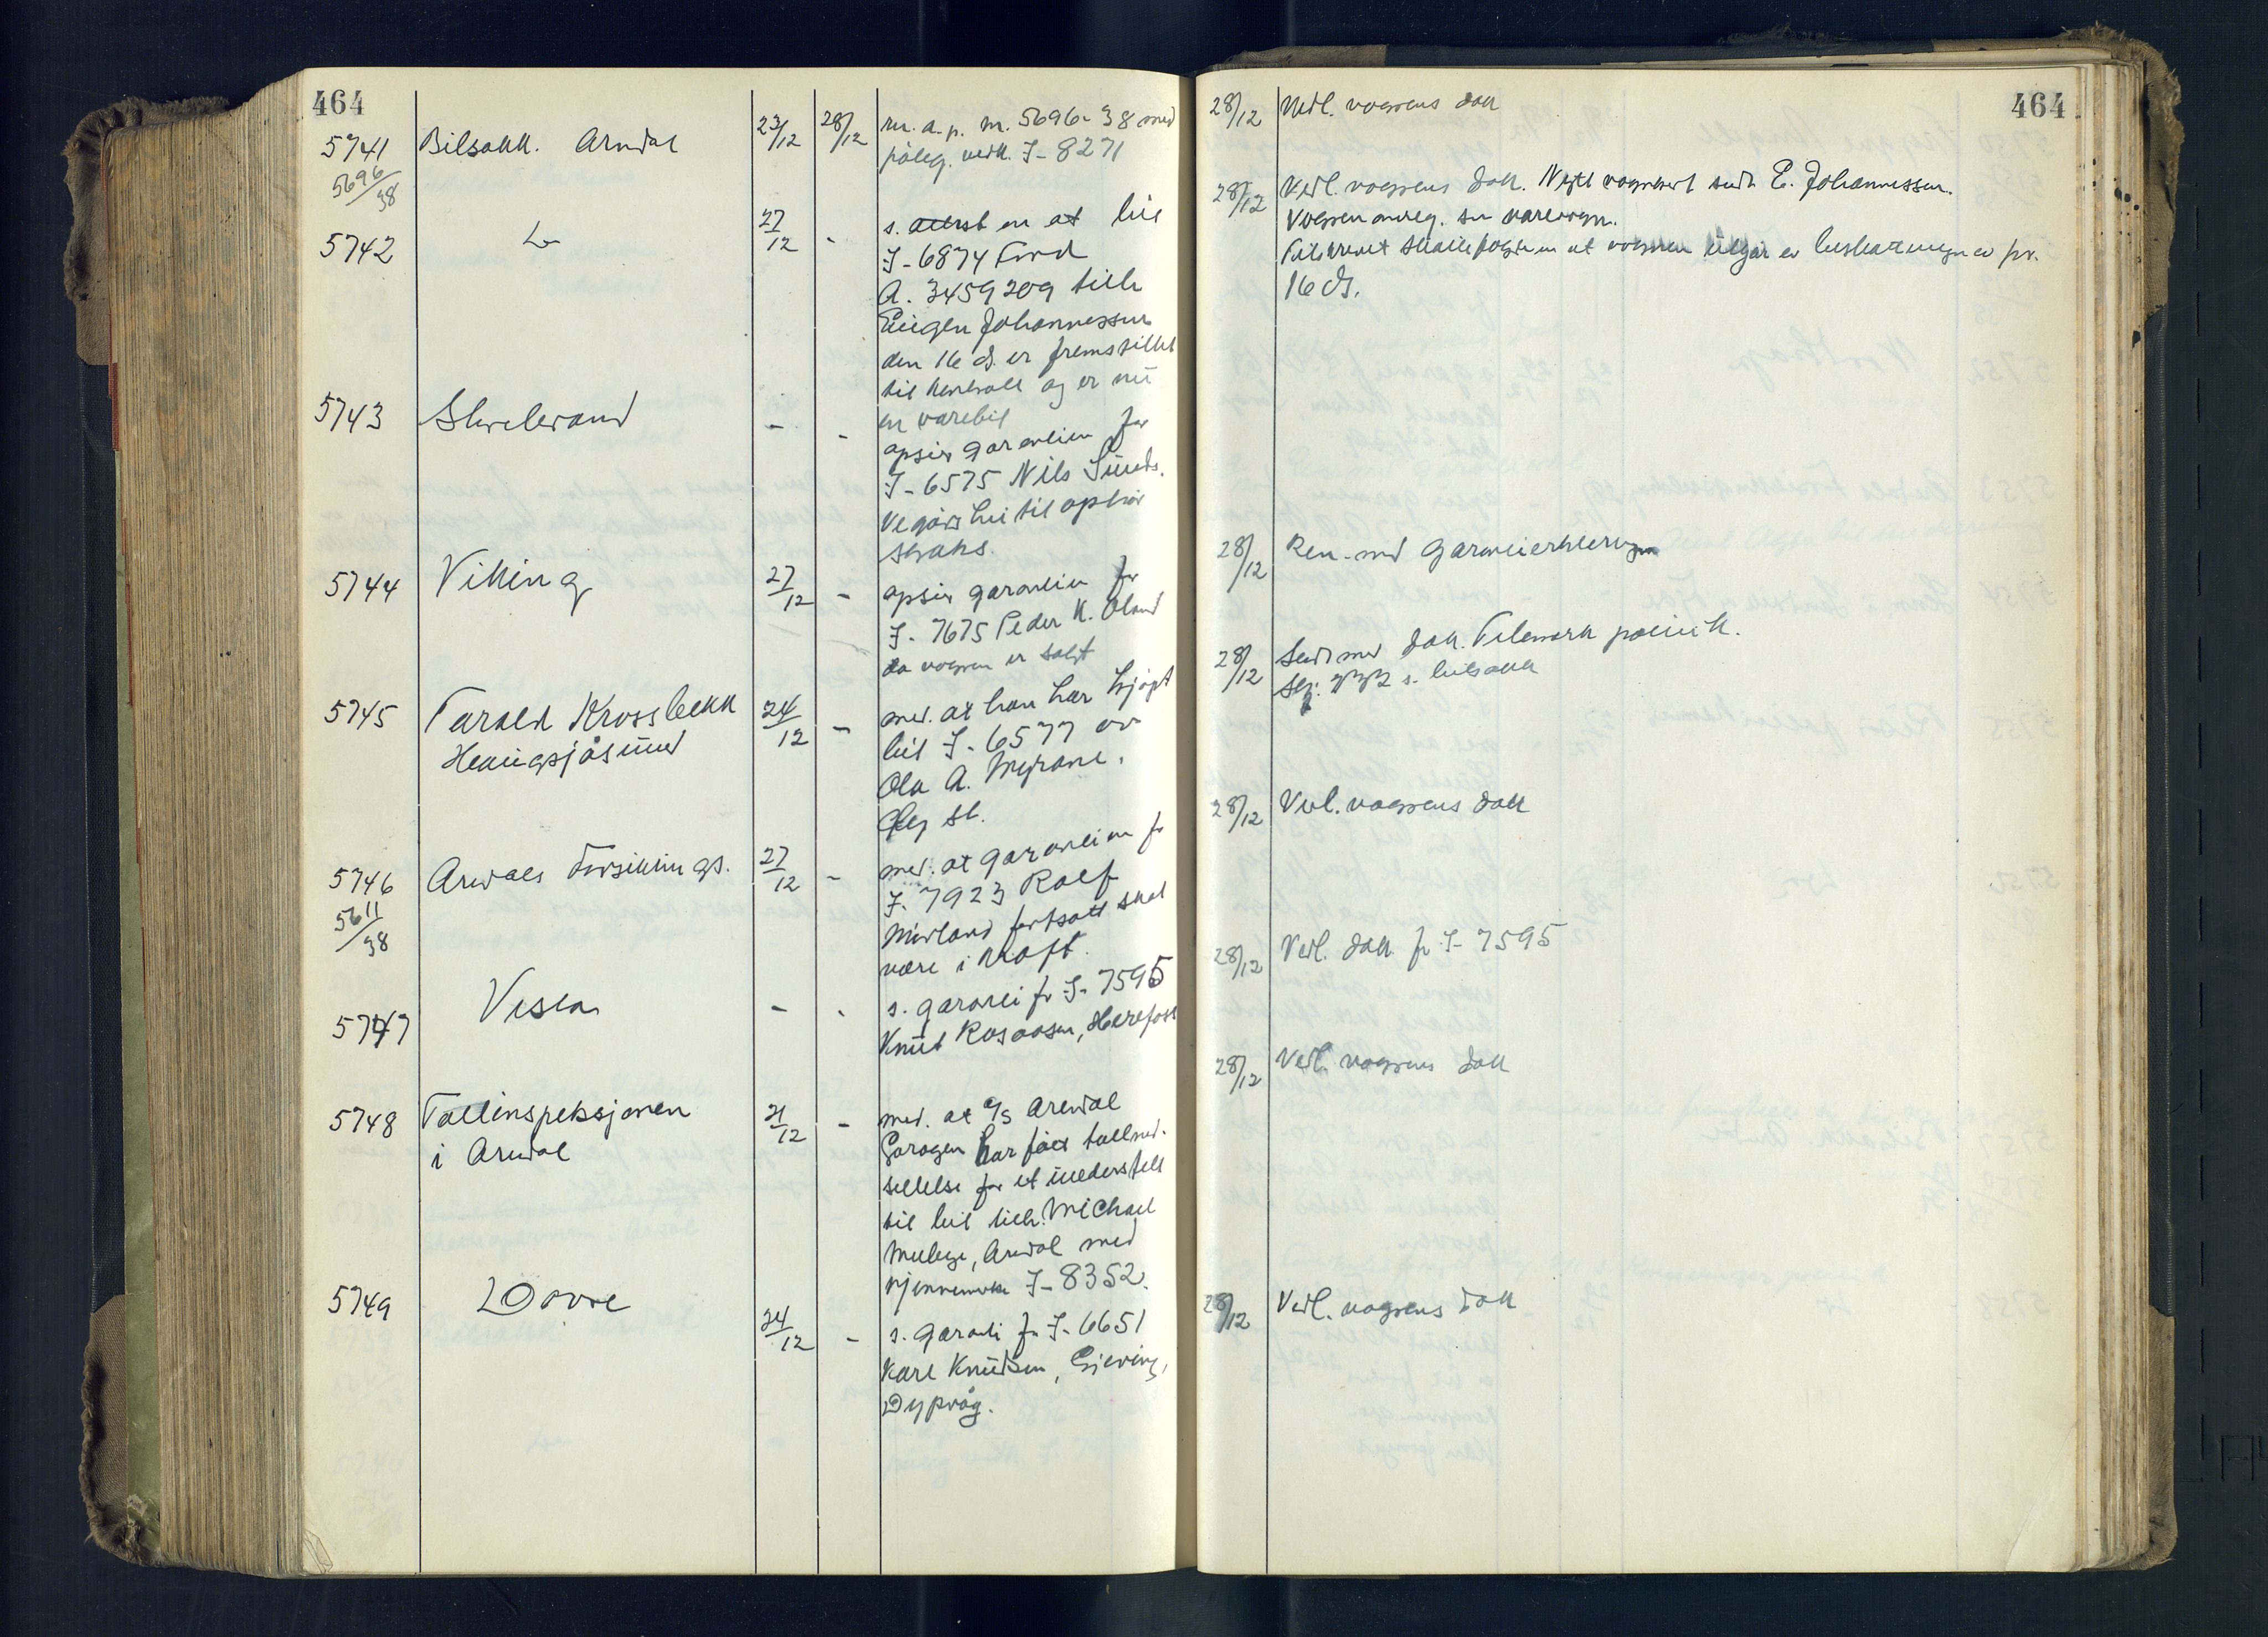 464
5741 Bilsakk. Arndal 23/12 28/12 m. a. p. nr. 5696-38 med
5696/38 påteg. vedk. I-8271
5742 Do 27/12 - s. attest om at bil
I-6874 Ford
A. 3459209 tilh
Eugen Johannessen
den 16 ds. er fremstillet
til kontroll og er nu
en varebil
5743 Storebrand - - opsier garantien for
I-6575 Nils Sunds.
Vegårshei til ophør
straks.
5744 Viking 27/12 - opsier garantien for
I-7675 Peder K. Oland
da vognen er solgt
5745 Tarald Krossbekk 24/12 - med. at han har kjøpt
Heuingsjåsund bil I-6577 av
Ola A. Myrane.
5746 Arendals Forsikrings. 27/12 - med. at garantien for
5611/38 I-7923 Rolf
Mirland fortsatt skal
være i kraft.
5747 Vesta - - s. garanti for I-7595
Knut Rosaasen, Herefoss
5748 Tollinspeksjonen 21/12 - med. at A/S Arendal
i Arendal Garagen har fått tollned-
settelse for et understell
til bil tilh. Michael
Arendal med
kjennemerke I-8352.
5749 Dovre 24/12 - s. garanti for I-6651
Karl Knudsen, Gjeving,
Dypvåg.
464
28/12 Vedl. vognens dok
28/12 Vedl. vognens dok. Nytt vognkort sendt E. Johannessen.
Vognen omreg. som varevogn.
at vognen utgår av beskatningen pr.
16 ds.
28/12 Ren. med garantierklæringen
28/12 Sendt med dok. Telemark politik.
28/12 Vedl. vognens dok
28/12 Vedl. dok. for I-7595
28/12 Vedl. vognens dok
28/12 Vedl. vognens dok